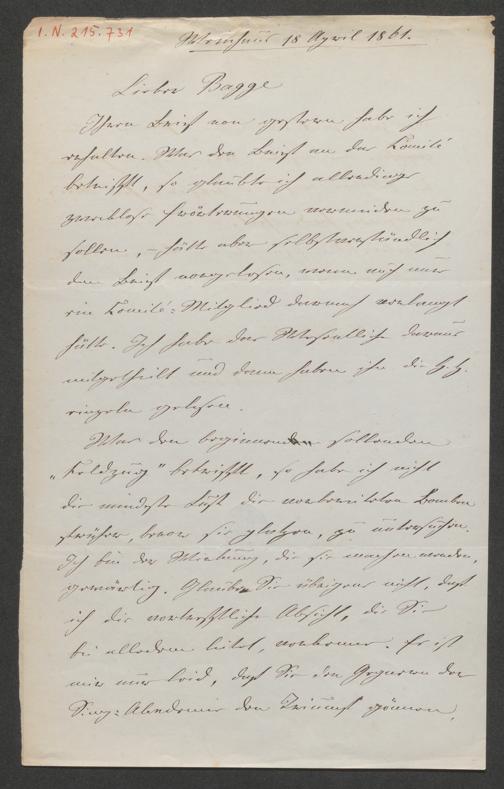 I. N. 215.731
18 April 1861.
Lieber Bagge
Ihren Brief von gestern habe ich
erhalten. Was den Brief an das Comité
betrifft, so glaubte ich allerdings
zwecklose Erörterungen vermeiden zu
sollen, – hätte aber selbstverständlich
den Brief vorgelesen, wenn auch nur
ein Comité-Mitglied darnach verlangt
hätte. Ich habe das Wesentliche daraus
mitgetheilt und dann haben ihn die H.H.
einzeln gelesen.
Was den beginnen sollenden
„Feldzug“ betrifft, so habe ich nicht
die mindeste Lust die vorbereiteten Bomben
früher, bevor sie platzen, zu untersuchen.
Ich bin der Wirkung, die sie machen werden,
gewärtig. Glauben Sie übrigens nicht, daß
ich die vortreffliche Absicht, die Sie
bei alledem leitet, verkenne. Es ist
mir nur leid, daß Sie den Gegnern der
Sing-Akademie den Triumf gönnen,